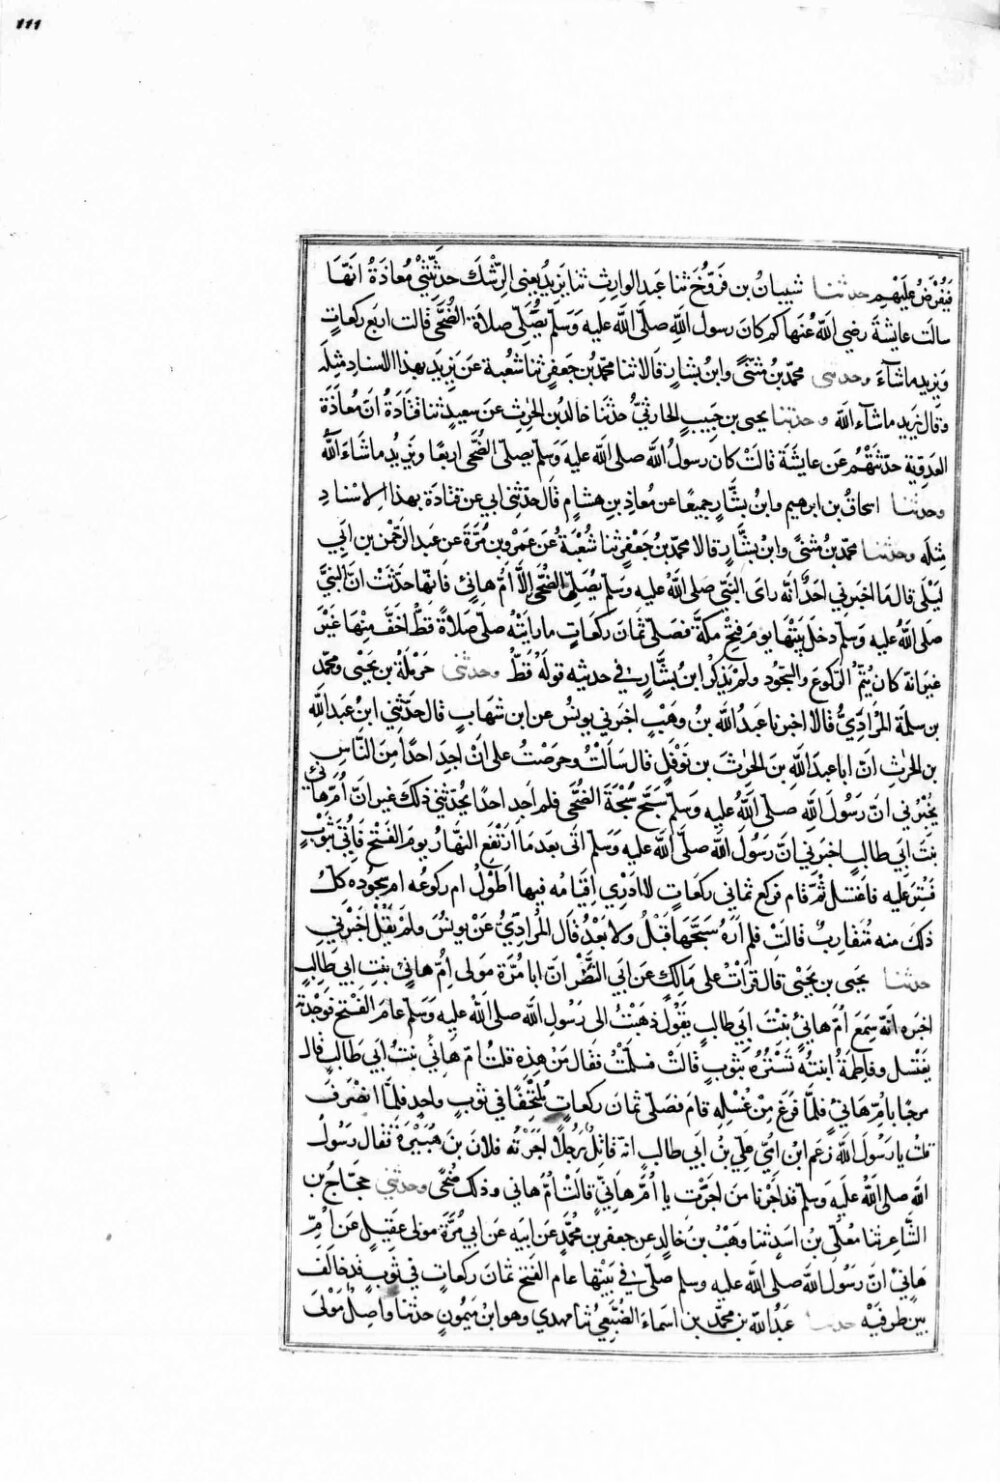 111
فيفرض عليهم حدثنا شيبان بن فروخ ثنا عبد الوارث ثنا يزيد يعني الرشك حدثتني معاذة انها
سالت عايشة رضي الله عنها كم كان رسول الله صلى الله عليه وسلم يصلي صلاة الضحى قالت اربع ركعات
ويزيد ما شآء وحدثني محمد بن مثنى وابن بشار قالا ثنا محمد بن جعفر ثنا شعبة عن يزيد بهذا الاسناد مثله
وقال يزيد ما شآء الله وحدثنا يحيى بن حبيب الحارثي حدثنا خالد بن الحرث عن سعيد ثنا قتادة ان معاذة
العدوية حدثتهم عن عايشة قالت كان رسول الله صلى الله عليه وسلم يصلي الضحى اربعا ويزيد ما شاء الله
وحدثنا اسحاق بن ابرهيم وابن بشار جميعا عن معاذ بن هشام قال حدثني ابي عن قتادة بهذا الاسناد
مثله وحدثنا محمد بن مثنى وابن بشار قالا محمد بن جعفر ثنا شعبة عن عمرو بن مرة عن عبد الرحمن بن ابي
ليلى قال ما اخبرني احد انه راى النبي صلى الله عليه وسلم يصلي الضحى الا ام هانئ فانها حدثت ان النبي
صلى الله عليه وسلم دخل بيتها يوم فتح مكة فصلى ثمان ركعات ما رايته صلى صلاة قط اخف منها غير
غير انه كان يتم الركوع والسجود ولم يذكر ابن بشار في حديثه قوله قط وحدثني حرملة بن يحيى ومحمد
بن سلمة المرادي قالا اخبرنا عبد الله بن وهب اخبرني يونس عن ابن شهاب قال حدثني ابن عبد الله
بن الحرث ان ابا عبد الله بن الحرث بن نوفل قال سالت وحرصت على ان اجد احدا من الناس
يخبرني ان رسول الله صلى الله عليه وسلم سبح سبحة الضحى فلم اجد احدا يحدثني ذلك غير ان ام هانئ
بنت ابي طالب اخبرتني ان رسول الله صلى الله عليه وسلم اتى بعد ما ارتفع النهار يوم الفتح فاتي بثوب
فستر عليه فاغتسل ثم قام فركع ثماني ركعات لا ادري اقيامه فيها اطول ام ركوعه ام سجوده كل
ذلك منه متقارب قالت فلم اره سبحها قبل ولا بعد قال المرادي عن يونس ولم يقل اخبرني
حدثنا يحيى بن يحيى قال قرات على مالك عن ابي النضر ان ابا مرة مولى ام هانئ بنت ابي طالب
اخبره انه سمع ام هانئ بنت ابي طالب يقول ذهبت الى رسول الله صلى الله عليه وسلم عام الفتح فوجدته
يغتسل وفاطمة ابنته تستره بثوب قالت فسلمت فقال من هذه قلت ام هانئ بنت ابي طالب قال
مرحبا بام هانئ فلما فرغ من غسله قام فصلى ثمان ركعات ملتحفا في ثوب واحد فلما انصرف
قلت يا رسول الله زعم ابن امي علي بن ابي طالب انه قاتل رجلا اجرته فلان بن هبيرة فقال رسول
الله صلى الله عليه وسلم قد اجرنا من اجرت يا ام هانئ قالت ام هاني وذلك ضحى وحدثني حجاج بن
الشاعر ثنا معلى بن اسد ثنا وهب بن خالد عن جعفر بن محمد عن ابيه عن ابي مرة مولى عقيل عن ام
هانئ ان رسول الله صلى الله عليه وسلم صلى في بيتها عام الفتح ثمان ركعات في ثوب قد خالف
بين طرفيه حدثنا عبد الله بن محمد بن اسماء الضبعي ثنا مهدي وهو ابن ميمون حدثنا واصل مولى